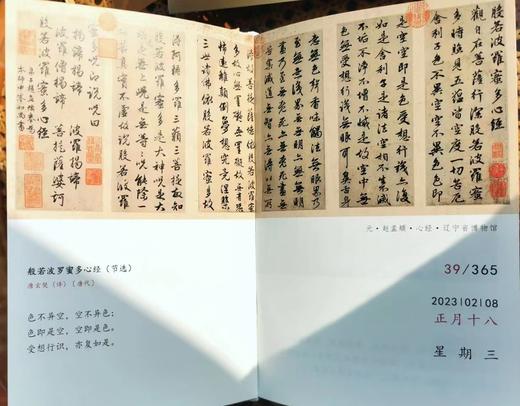 般若波羅蜜多心經
觀自在菩薩行深般若波羅蜜
多時照見五蘊皆空度一切苦厄
舍利子色不異空空不異色色即
是空空即是色受想行識亦復
如是舍利子是諸法空相不生不滅
不垢不淨不增不減是故空中
無色無受想行識無眼耳鼻舌身
意無色聲香味觸法無眼界乃
至無意識界無無明亦無無明
盡乃至無老死亦無老死盡無
苦集滅道無智亦無得以無所
得故菩提薩埵依般若波羅蜜
多故心無罣礙無罣礙故無有恐
怖遠離顛倒夢想究竟涅槃
三世諸佛依般若波羅蜜多故
得阿耨多羅三藐三菩提故知
般若波羅蜜多是大神咒是大
明咒是無上咒是無等等咒能除
一切苦真實不虛故說般若波羅
蜜多咒即說咒曰
揭諦揭諦 波羅揭諦
波羅僧揭諦 菩提薩婆訶
般若波羅蜜多心經
弟子趙孟頫奉為
本師中峯和尚書
元·赵孟頫·心经·辽宁省博物馆
般若波罗蜜多心经（节选）
唐玄奘（译）〔唐代〕
色不异空，空不异色；
色即是空，空即是色。
受想行识，亦复如是。
39/365
2023|02|08
正月十八
星期三